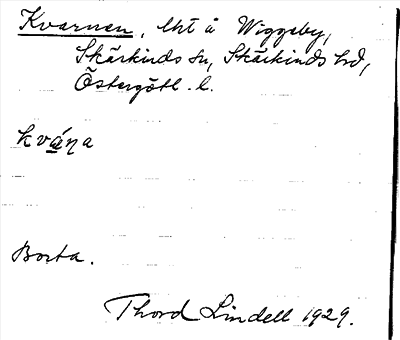 Kvarnen, lht å Wiggeby,
Skärkinds sn, Skärkinds hd,
Östergötl. l.
kvána
Borta.
Thord Lindell 1929.